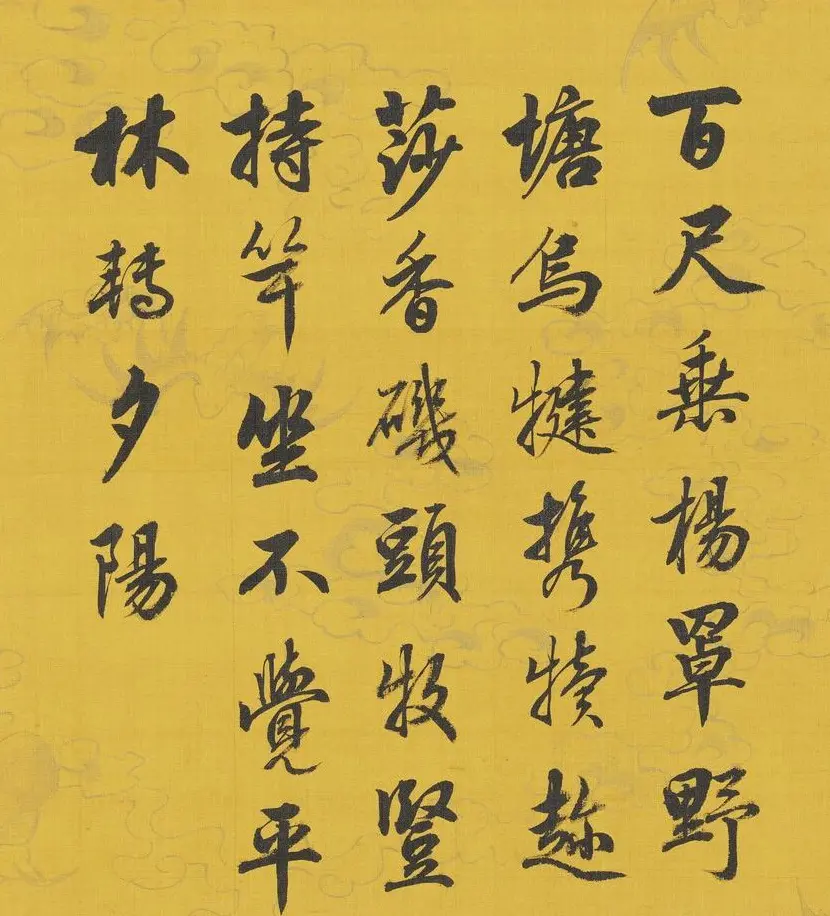 百尺垂楊罩野
塘烏犍携犢趂
莎香磯頭牧豎
持竿坐不覺平
林轉夕陽